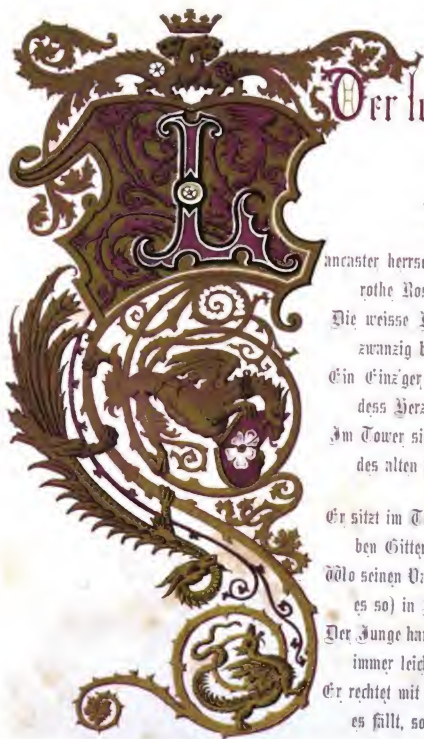 Der l
L
ancaster herrs
rothe Ros
Die weisse
zwanzig
Ein Einz'ger
dess Herz
Im Tower si
des alten
Er sitzt im T
ben Gitter
Wo seinen Va
es so) in
Der Junge har
immer leich
Er rechtet mit
es fällt, so